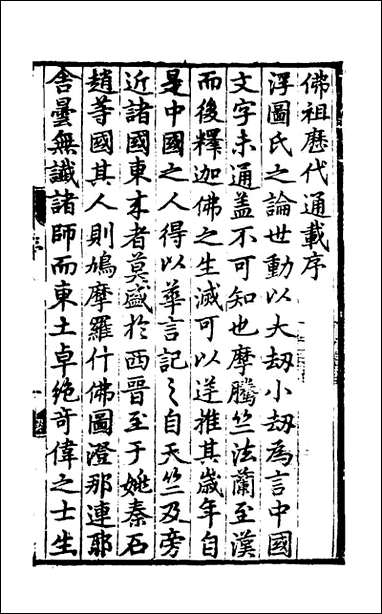 佛祖歷代通載序
浮圖氏之論世動以大劫小劫為言中國
文字未通盖不可知也摩騰竺法蘭至漢
而後釋迦佛之生滅可以逆推其歲年自
是中國之人得以華言記之自天竺及旁
近諸國東来者莫盛於西晉至于姚秦石
趙等國其人則鳩摩羅什佛圖澄那連耶
舎曇無讖諸師而東土卓絶竒偉之士生
序